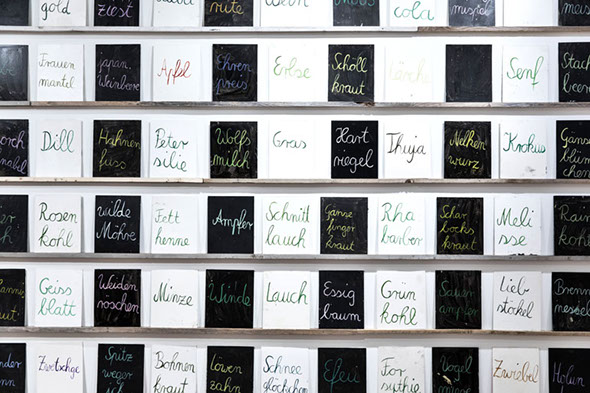 gold
ziest
rute
cola
mispel
Frauen
mantel
japan.
Weinbeere
Apfel
Ehren
preis
Erbse
Scholl
kraut
Lärche
Senf
Stach
beer
orch
nabel
Dill
Hahnen
fuss
Peter
silie
Wolfs
milch
Gras
Hart
riegel
Thuja
Nelken
wurz
Krokus
Gänse
blüm
chen
er
Rosen
kohl
wilde
Möhre
Fett
henne
Ampfer
Schnitt
lauch
Gänse
finger
kraut
Rha
barber
Schar
bocks
kraut
Meli
sse
Rain
Geiss
blatt
Weiden
roschen
Minze
Winde
Lauch
Essig
baum
Grün
kohl
Sauer
ampfer
Lieb
stöckel
Brenn
nessel
Zwetschge
Spitz
weger
ich
Bohnen
kraut
löwen
zahn
Schnee
glöckchen
Efeu
For
sythie
Vogel
miere
Zwiebel
Holun